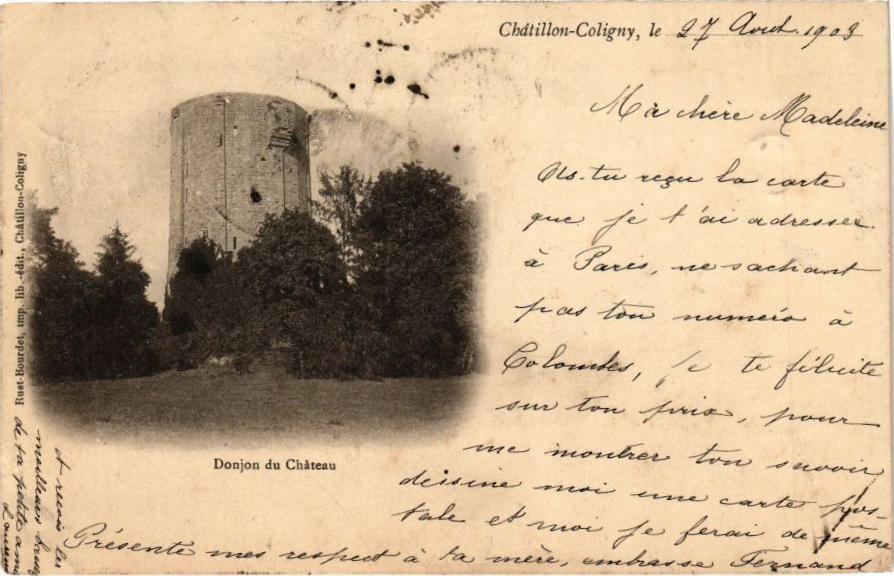 Châtillon-Coligny, le 27 Août 1903
Ma chère Madeleine
As-tu reçu la carte
que je t'ai adresser
à Paris, ne sachant
pas ton numéro à
Colombes, je te félicite
sur ton prix, pour
me montrer ton savoir
dessine moi une carte pos-
tale et moi je ferai de même
Présente mes respect à ta mère, embrasse Fernand
et reçois les
meilleurs
de ta petite amie
Donjon du Château
Ruet-Bourdet, imp. lib.-édit., Châtillon-Coligny